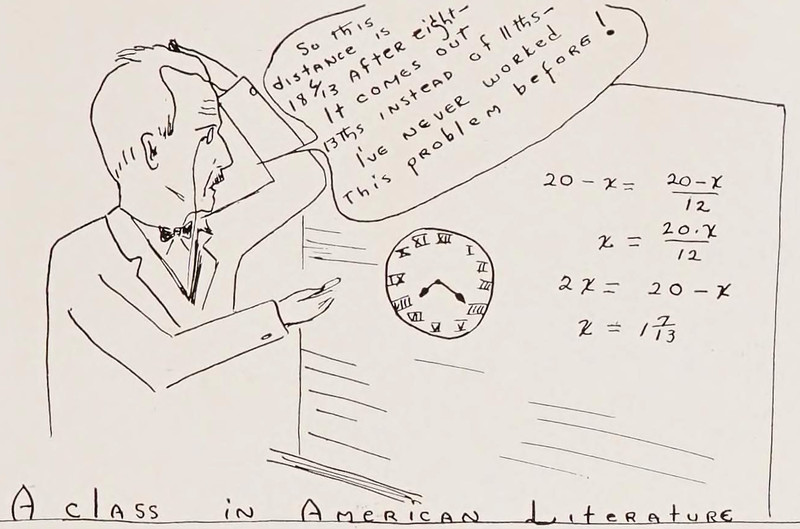 So this
distance is
18 6/13 AFTER eight-
It comes out
13ths instead of 11ths-
I've never worked
This problem before!
XII
I
II
IIII
V
VI
VII
VIII
IX
X
XI
20 - x = 20 - x / 12
x = 20 . x / 12
2x = 20 - x
x = 1 7/13
A class in American Literature